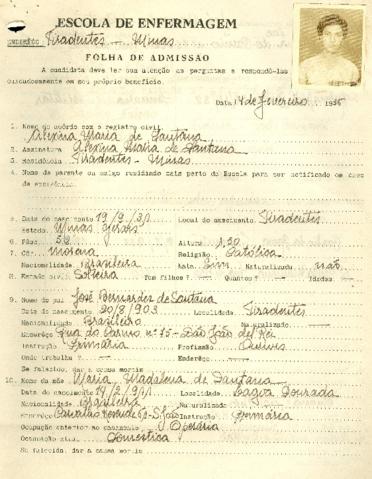 ESCOLA DE ENFERMAGEM
ENDEREÇO Tiradentes - Minas
FOLHA DE ADMISSÃO
A candidata deve ler com atenção as perguntas e respondê-las
cuidadosamente em seu próprio benefício.
Data, 14 de fevereiro, 195
1. Nome de acôrdo com o registro civil
Maria de Santana
2. Assinatura Maria de Santana
3. Residência Tiradentes - Minas
4. Nome de parente ou amigo residindo mais perto da Escola para ser notificado em caso
de
5. Data do nascimento 19/9/31 Local do nascimento Tiradentes
Estado Minas Gerais
6. Pêso 56 Altura 1,50
7. Côr morena Religião Católica
Nacionalidade Brasileira Nata Sim Naturalizada não
8. Estado civil Solteira Tem filhos? Quantos? Idades
9. Nome do pai José Bernardes de Santana
Data do nascimento 20/8/903 Localidade Tiradentes
Nacionalidade Brasileiro Naturalizado
Endereço Rua do Carmo nº 45 - São João del Rei
Instrução Primária Profissão Ourives
Onde trabalha? Endereço
Se falecido, dar a causa mortis
10. Nome da mãe Maria Madalena de Santana
Data do nascimento 14/2/911 Localidade Lagoa Dourada
Nacionalidade Brasileira Naturalizada
Endereço Instrução primária
Ocupação anterior ao casamento Operária
Ocupação atual Doméstica
Se falecida, dar a causa mortis